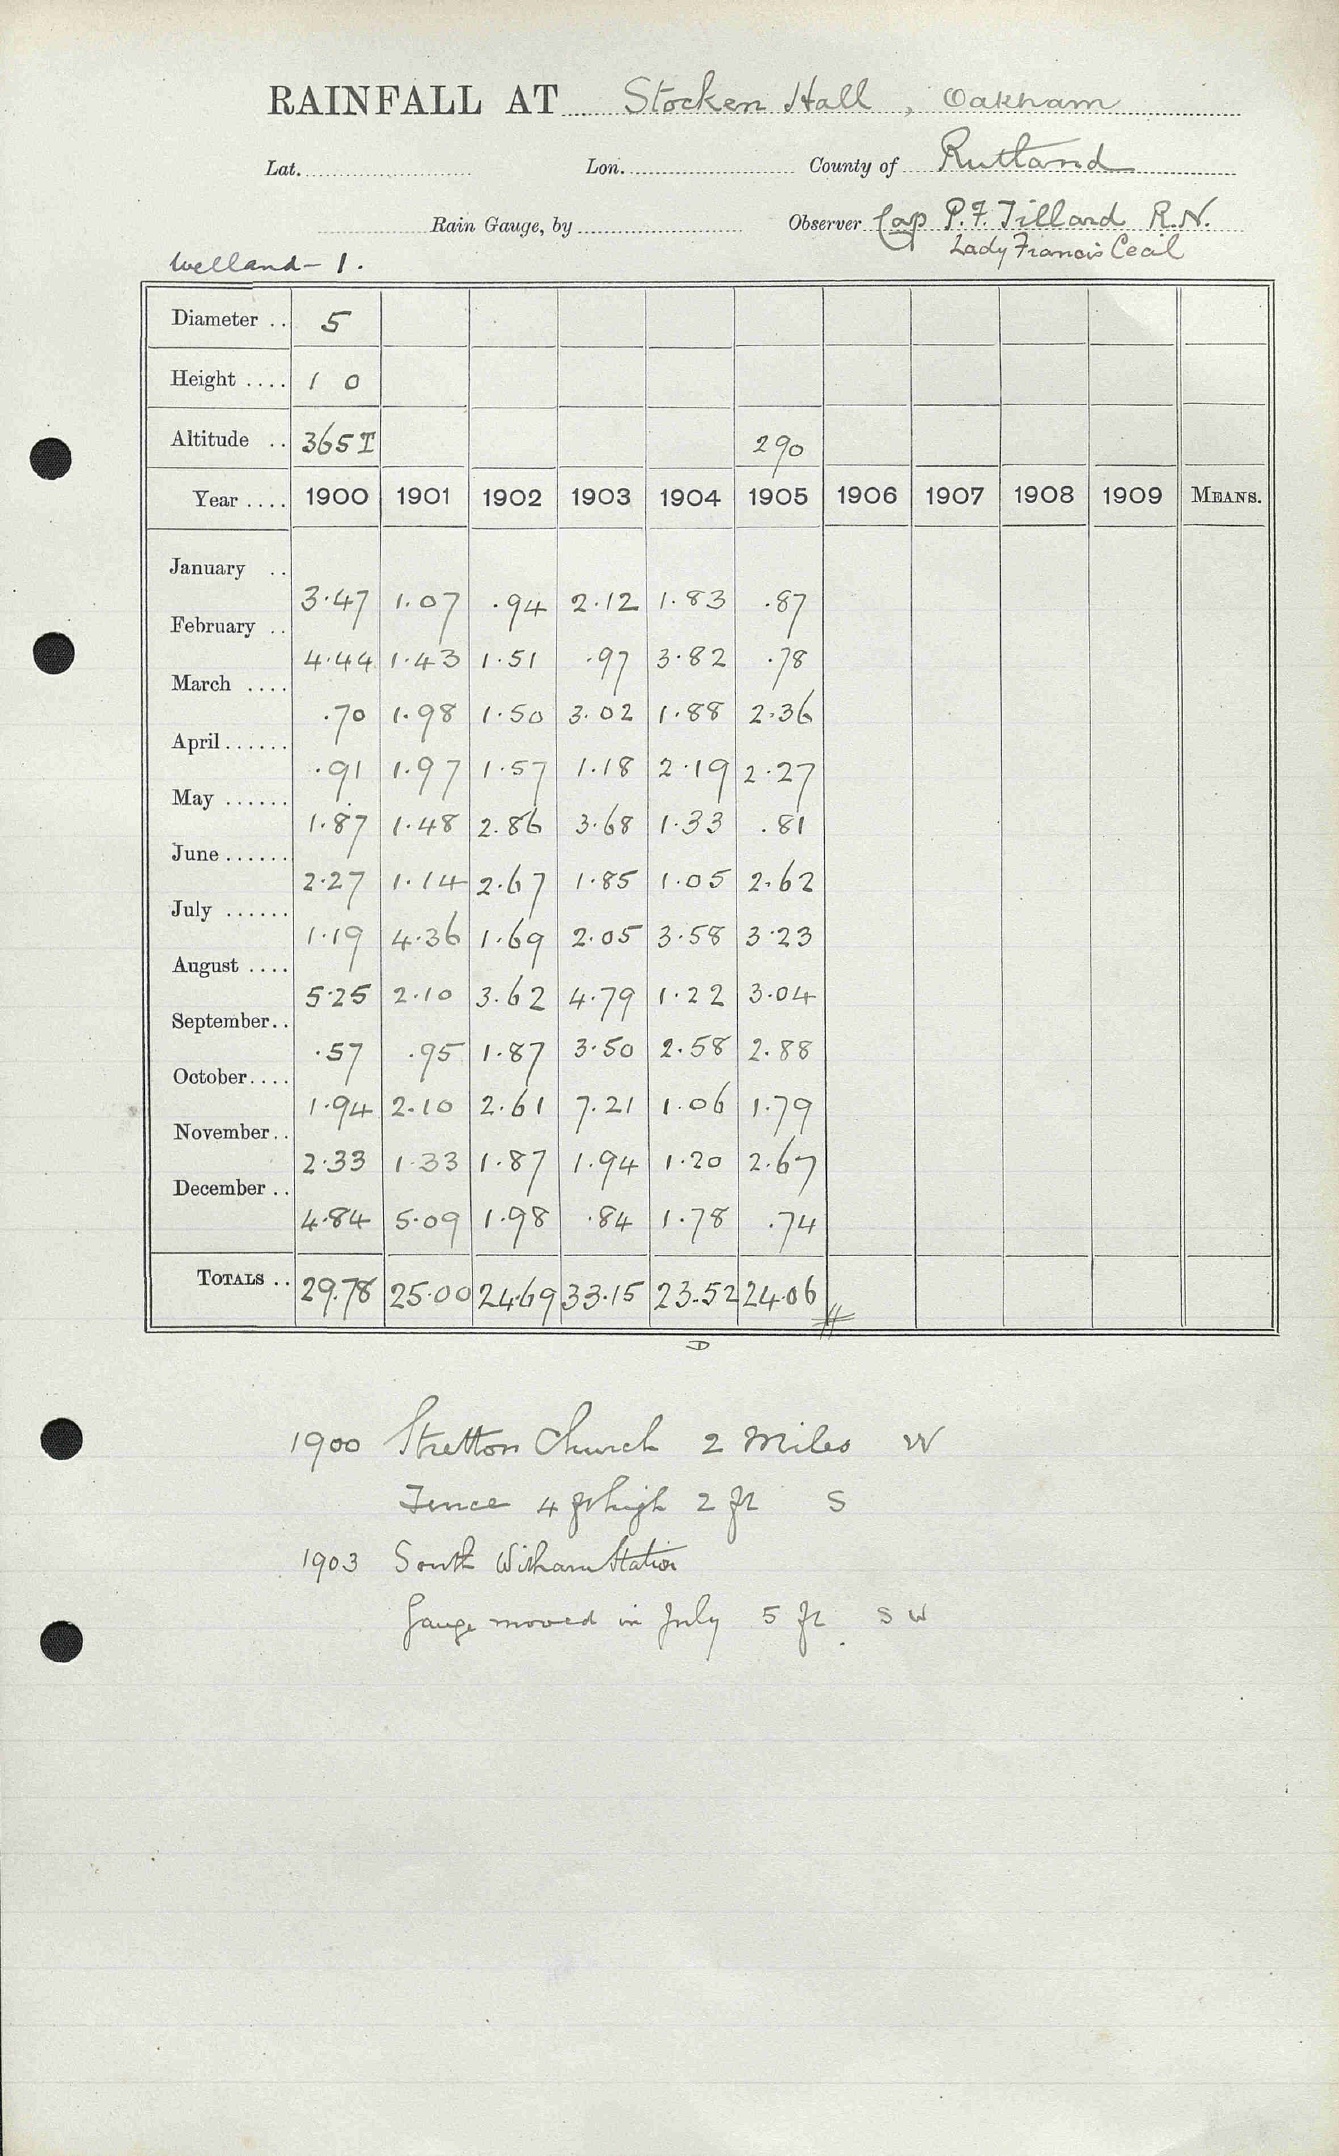 RAINFALL AT Stocken Hall, Oakham
Lat. Lon. County of Rutland
Rain Gauge, by Observer Cap P.F. Tillard R.N.
Lady Francis Cecil
Welland - 1.
Diameter .. 5
Height .... 1 0
Altitude .. 365T 290
Year .... 1900 1901 1902 1903 1904 1905 1906 1907 1908 1909 MEANS.
January .. 3.47 1.07 .94 2.12 1.83 .87
February .. 4.44 1.43 1.51 .97 3.82 .78
March .... .70 1.98 1.50 3.02 1.88 2.36
April...... .91 1.97 1.57 1.18 2.19 2.27
May ...... 1.87 1.48 2.86 3.68 1.33 .81
June...... 2.27 1.14 2.67 1.85 1.05 2.62
July ...... 1.19 4.36 1.69 2.05 3.58 3.23
August .... 5.25 2.10 3.62 4.79 1.22 3.04
September.. .57 .95 1.87 3.50 2.58 2.88
October.... 1.94 2.10 2.61 7.21 1.06 1.79
November.. 2.33 1.33 1.87 1.94 1.20 2.67
December .. 4.84 5.09 1.98 .84 1.78 .74
TOTALS .. 29.78 25.00 24.69 33.15 23.52 24.06
D
1900 Stretton Church 2 Miles W
Fence 4 ft high 2 ft S
1903 South Witham Station
Gauge moved in July 5 ft SW